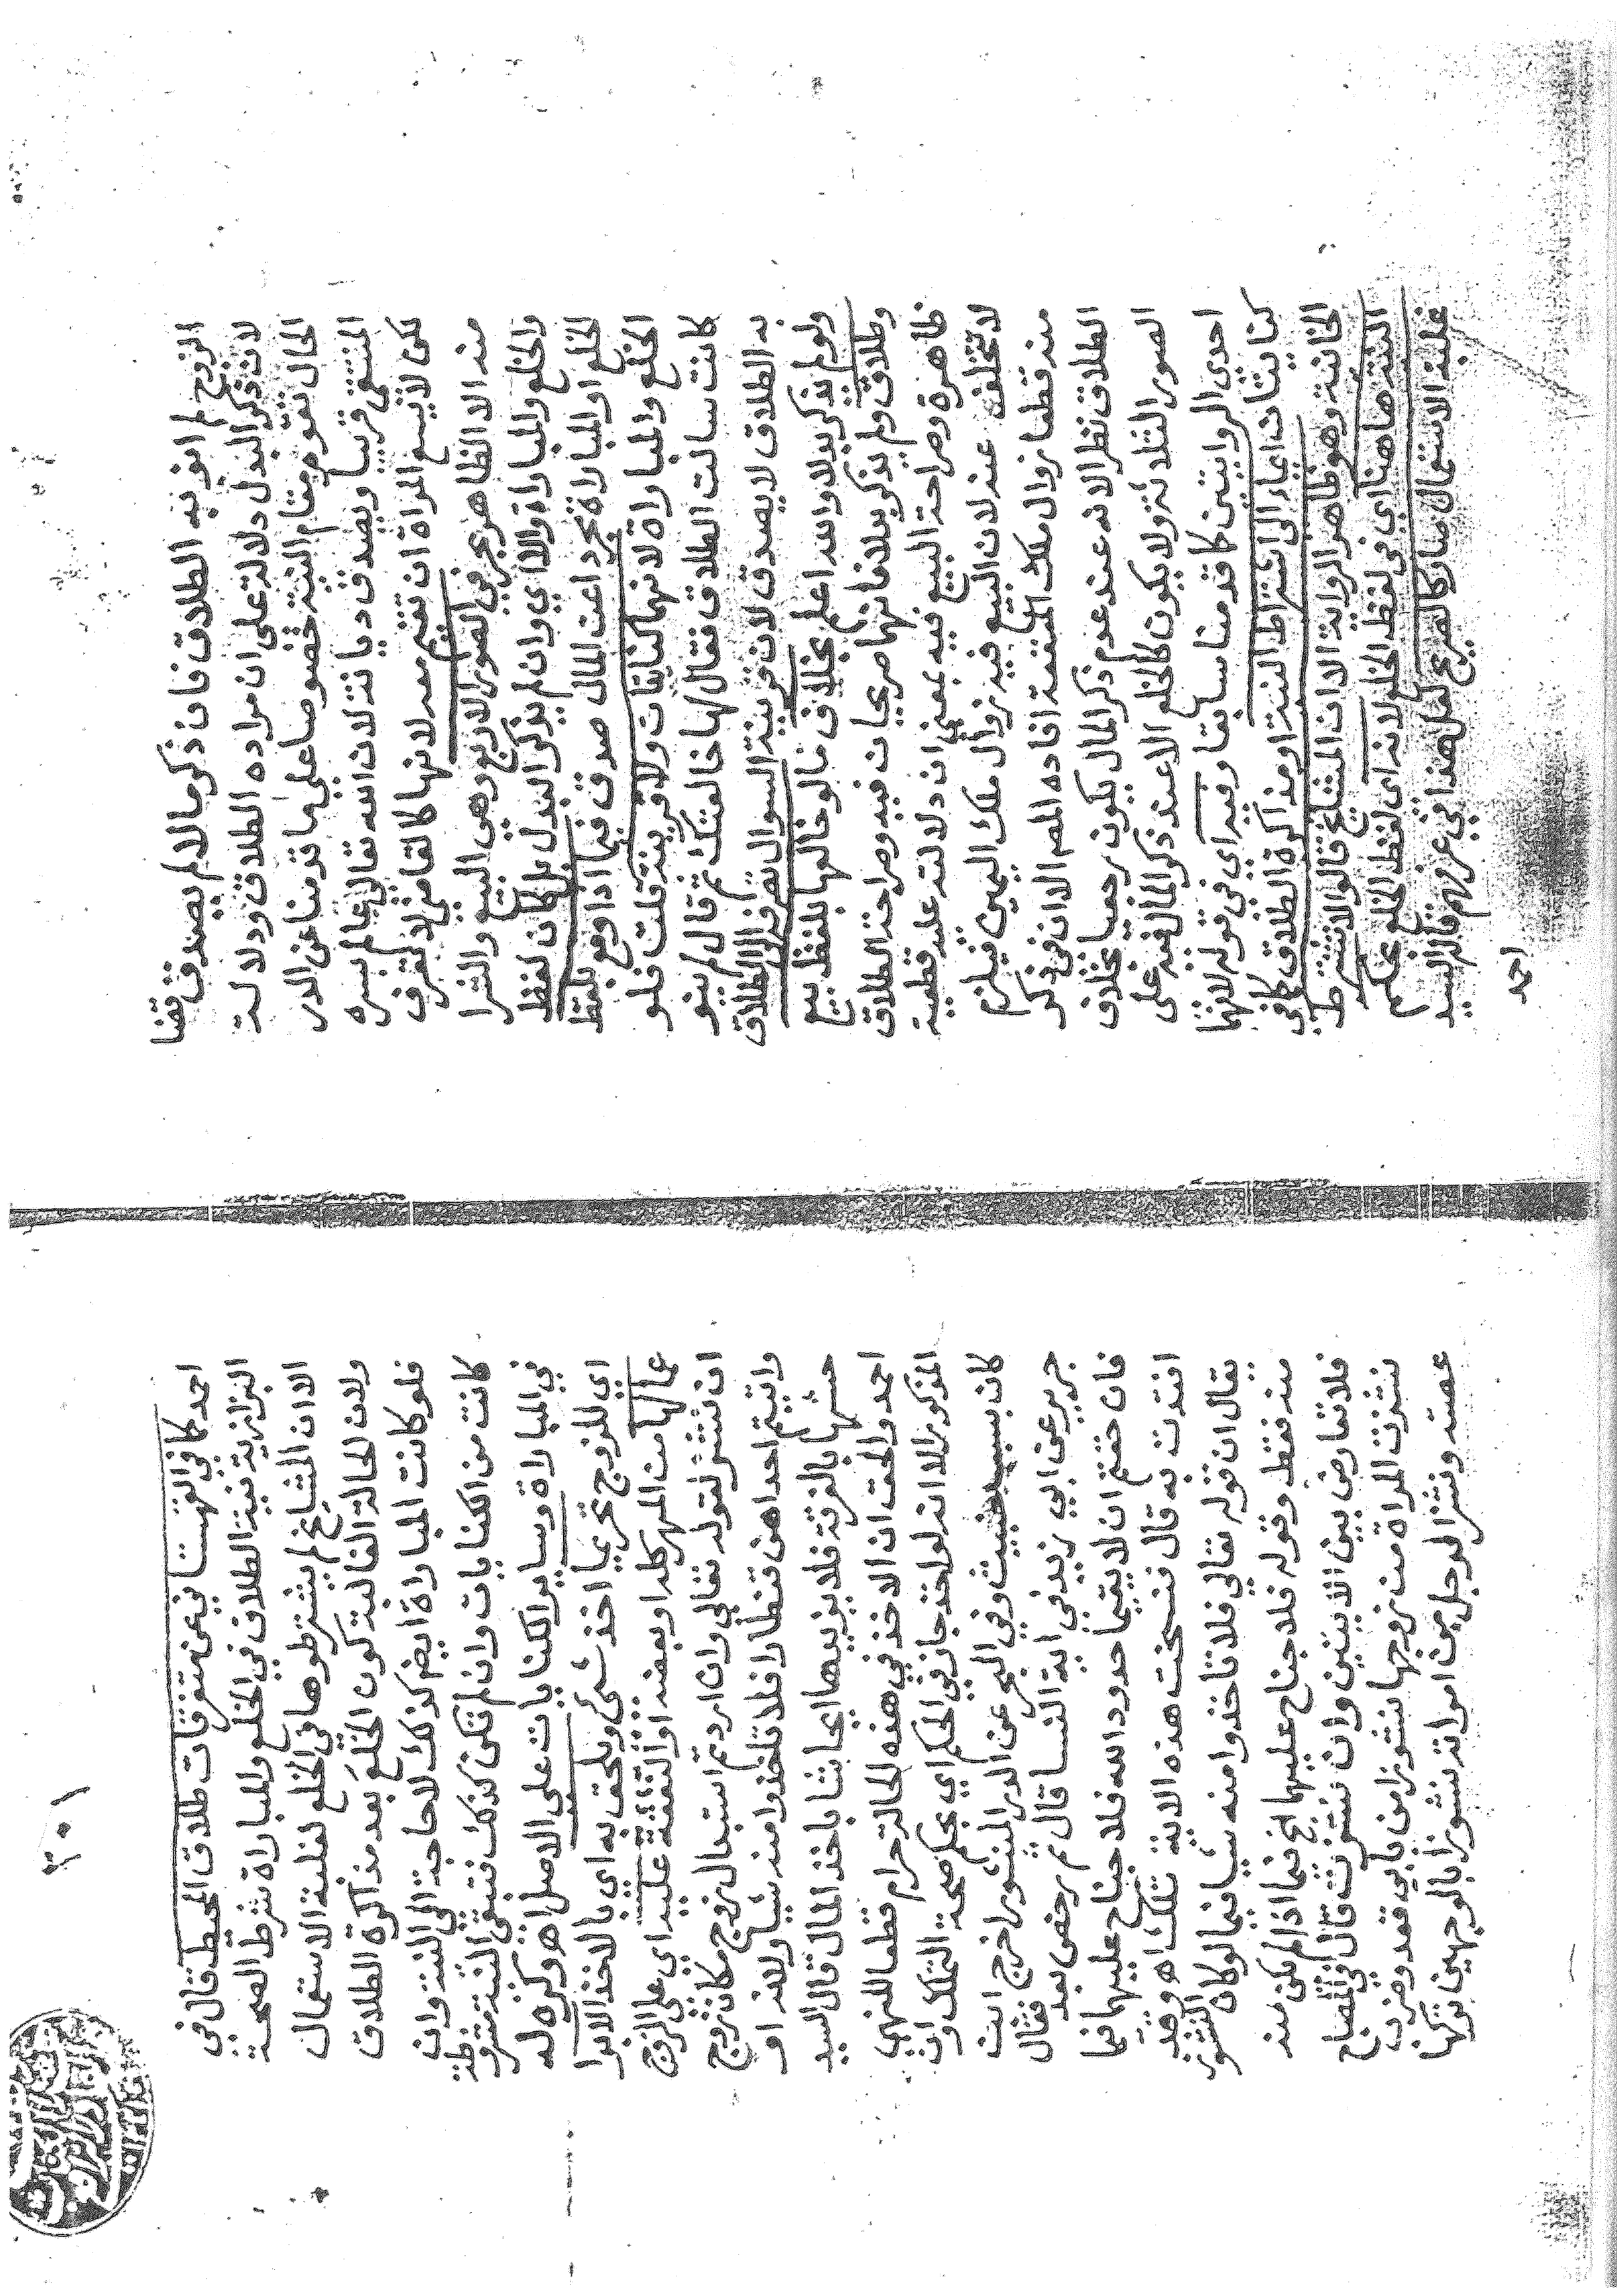 الزوج لم انو به الطلاق فان ذكر مالا لم يصدق قضا
لان ذكر البدل دلالة على ان مراده الطلاق ودلالة
الحال تقوم مقام النية خصوصا على ما قدمنا عن الدر
المنتقى قريبا ويصدق ديانة لان الله تعالى عالم بسره
لكن لا يسع المراة ان تقيم معه لانها كالقاضي لا تعرف
منه الا الظاهر بحر في الصور الاربع وهي البيع والشرا
والخلع والمباراة والا اي وان لم يذكر البدل بل كان لفظ
الخلع او المباراة مجردا عن المال صدق فيما اذا وقع بلفظ
الخلع والمباراة لانهما كنايتان ولا قرينة قلت فلو
كانت سالت الطلاق فقال لها خالعتك ثم قال لم ينو
به الطلاق لا يصدق لان قرينة السوال تصرفه الى الطلاق
ولو لم يذكر بدلا والله اعلم بخلاف ما لو خالعها بلفظ بيع
وطلاق ولم يذكر بدلا فانهما صريحان فيه وصراحة الطلاق
ظاهرة وصراحة البيع فيه بمعنى ان دلالته عليه قطعية
لا تتخلف عنه لان البيع فيه زوال ملك اليمين فيلزم
منه قطعا زوال ملك المتعة افاده المص الا ان في ذكر
الطلاق نظر الا انه عند عدم ذكر المال يكون رجعيا بخلاف
الصور الثلاثة ولا يكون كالخلع الا عند ذكر المال فيه على
احدى الروايتين كما قدمنا سابقا وفيه اي في قوله لانهما
كنايتان ايماء الى اشتراط النية او مذاكرة الطلاق كما في
الخانية وهو ظاهر الرواية الا ان المشايخ قالوا لا تشترط
النية ها هنا اي في لفظ الخلع لانه اي لفظ الخلع بحكم
غلبة الاستعمال صار كالصريح لمثل هذا في عرفهم قال السيد
احمد
٣٠١
احمد كما في القهستاني عن متفرقات طلاق المحيط قال في
البزازية نية الطلاق في الخلع والمباراة شرط الصحة
الا ان المشايخ لم يشترطوها في الخلع لغلبة الاستعمال
ولان الحالة الغالبة كون الخلع بعد مذاكرة الطلاق
فلو كانت المباراة ايضا كذلك لا حاجة الى النية وان
كانت من الكنايات وان لم تكن كذلك فتبقى النية مشروطة
في المباراة وساير الكنايات على الاصل اهـ وكره له
اي للزوج تحريما اخذ شئ ويلحق به اي بالاخذ الابرا
عما لها من المهر كله او بعضه او النفقة عليه اي على الزوج
ان نشز لقوله تعالى وان اردتم استبدال زوج مكان زوج
واتيتم احداهن قنطارا فلا تاخذوا منه شيا ولانه او
حشها بالفرقة فلا يزيدها ايحاشا باخذ المال قال السيد
احمد والحق ان الاخذ في هذه الحالة حرام قطعا للنهي
المذكور الا انه لو اخذ جاز في الحكم اي بحكم صحة التملك وان
كان بسبب خبيث وفي البحر عن الدر المنثور اخرج ابن
جرير عن ابي زيد في اية النسا قال ثم رخص بعد فقال
فان خفتم ان لا يقيما حدود الله فلا جناح عليهما فيما
افتدت به قال فنسخت هذه الاية تلك اهـ وقد
يقال ان قوله تعالى فلا تاخذوا منه شيا فيما لو كان النشوز
منه فقط وقوله فلا جناح عليهما الخ فيما اذا لم يكن منه
فلا تعارض بين الايتين وان نشزت قال في المصباح
نشزت المراة من زوجها نشوزا من بابي قعد وضرب
عصته ونشز الرجل من امراته نشوزا بالوجهين تركها